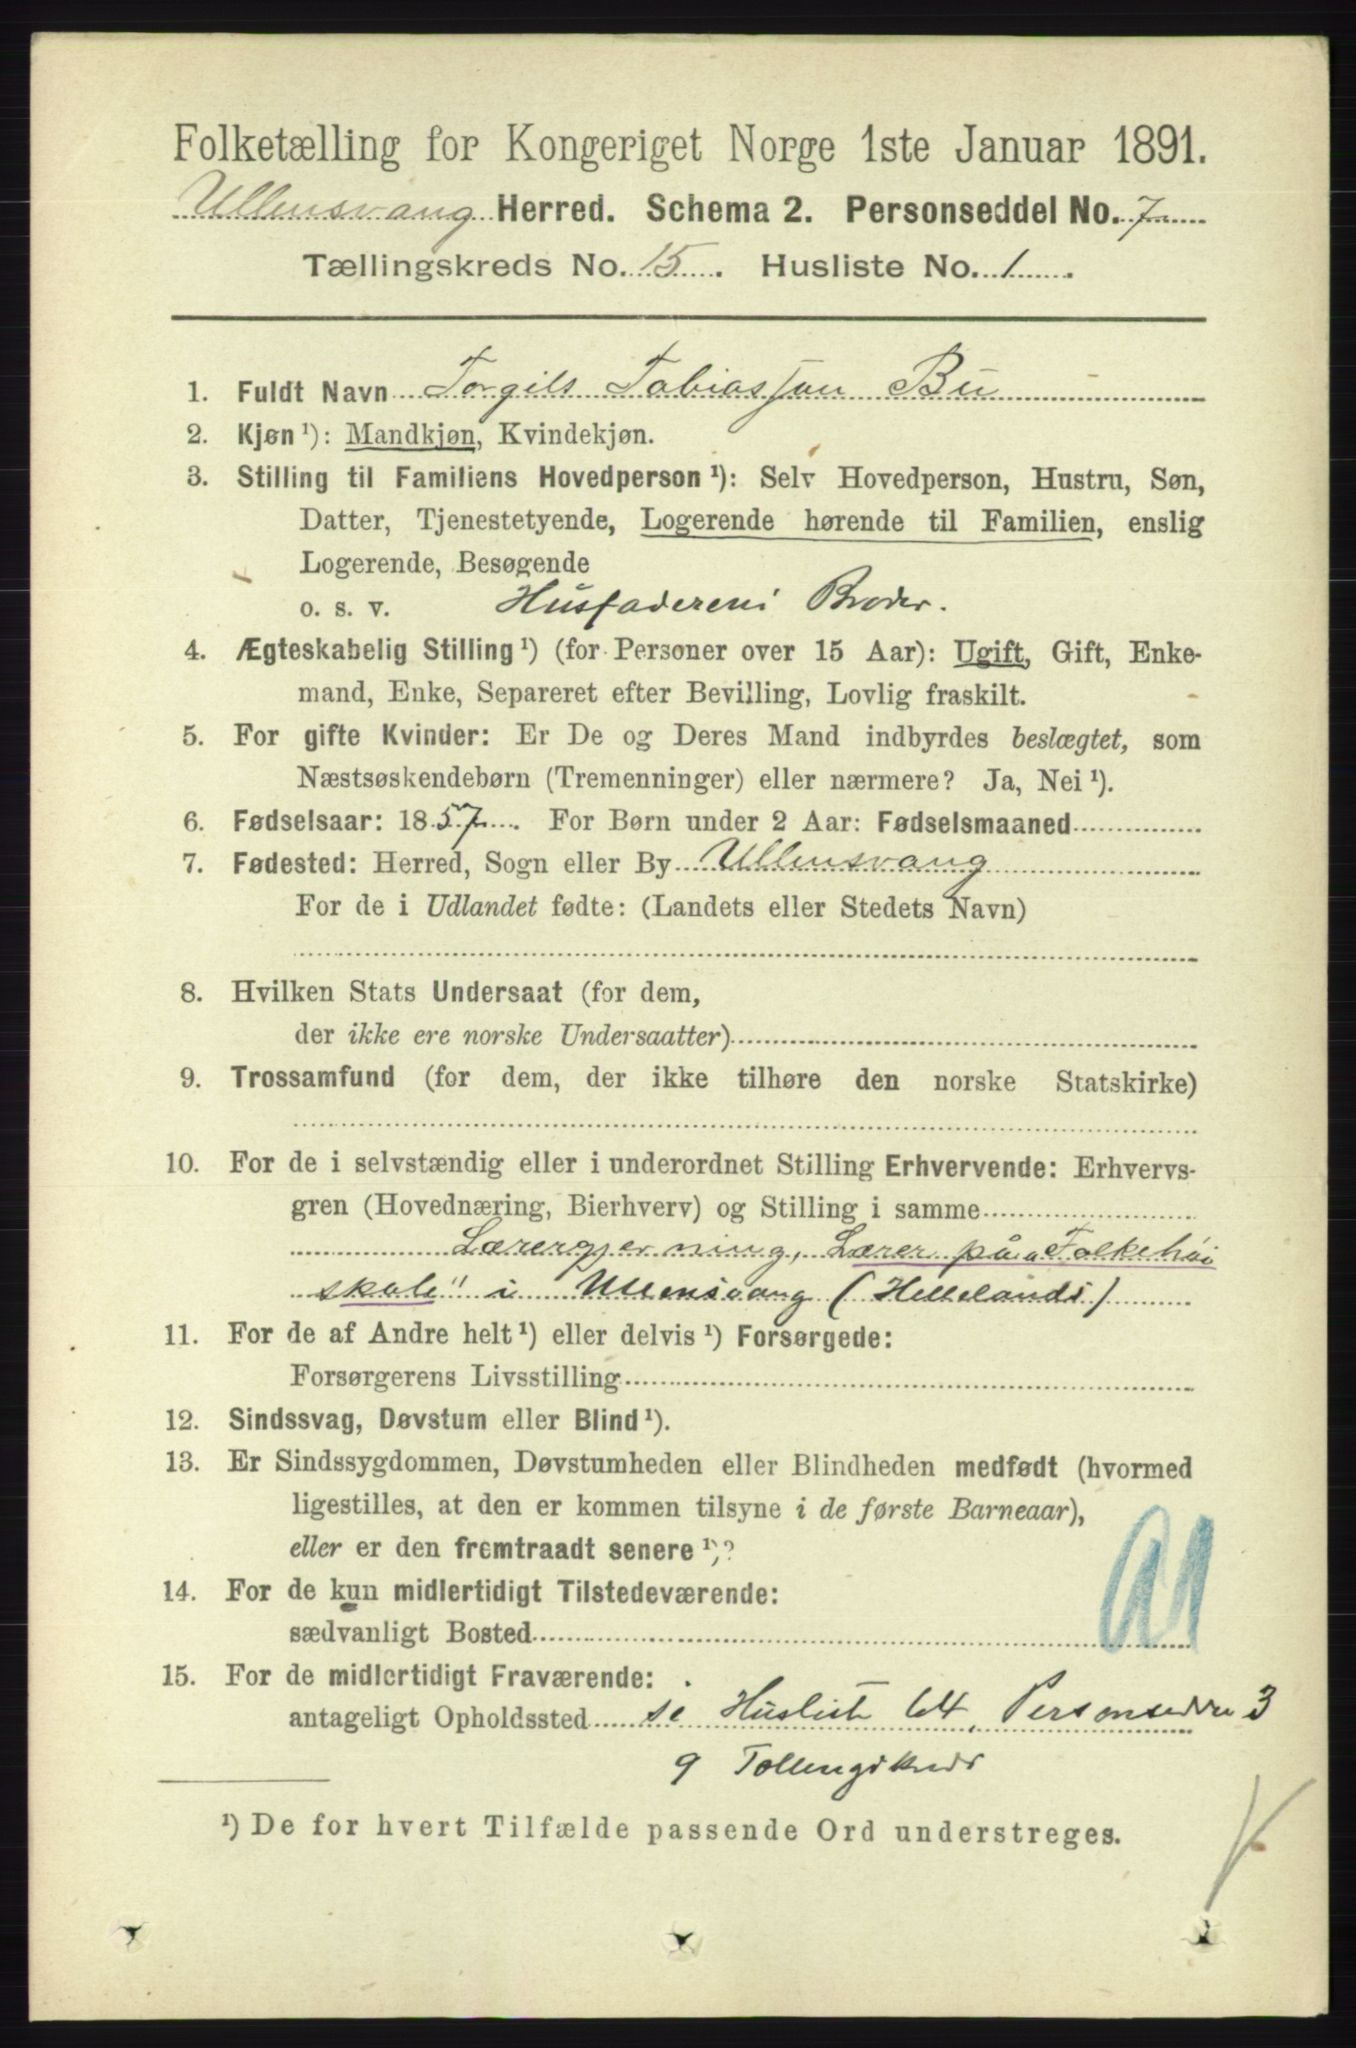 Folketælling for Kongeriget Norge 1ste Januar 1891.
Ullensvang Herred. Schema 2. Personseddel No. 7
Tællingskreds No. 15. Husliste No. 1.
1. Fuldt Navn Torgils Tobiassøn Bu
2. Kjøn ¹): Mandkjøn, Kvindekjøn.
3. Stilling til Familiens Hovedperson ¹): Selv Hovedperson, Hustru, Søn,
Datter, Tjenestetyende, Logerende hørende til Familien, enslig
Logerende, Besøgende
o. s. v. Husfaderens Broder.
4. Ægteskabelig Stilling ¹) (for Personer over 15 Aar): Ugift, Gift, Enke-
mand, Enke, Separeret efter Bevilling, Lovlig fraskilt.
5. For gifte Kvinder: Er De og Deres Mand indbyrdes beslægtet, som
Næstsøskendebørn (Tremenninger) eller nærmere? Ja, Nei ¹).
6. Fødselsaar: 1857. For Børn under 2 Aar: Fødselsmaaned
7. Fødested: Herred, Sogn eller By Ullensvang
For de i Udlandet fødte: (Landets eller Stedets Navn)
8. Hvilken Stats Undersaat (for dem,
der ikke ere norske Undersaatter)
9. Trossamfund (for dem, der ikke tilhøre den norske Statskirke)
10. For de i selvstændig eller i underordnet Stilling Erhvervende: Erhvervs-
gren (Hovednæring, Bierhverv) og Stilling i samme
Lærergjerning, Lærer på "Folkehøi
skole" i Ullensvang (Hellelands)
11. For de af Andre helt ¹) eller delvis ¹) Forsørgede:
Forsørgerens Livsstilling
12. Sindssvag, Døvstum eller Blind ¹).
13. Er Sindssygdommen, Døvstumheden eller Blindheden medfødt (hvormed
ligestilles, at den er kommen tilsyne i de første Barneaar),
eller er den fremtraadt senere ¹)?
14. For de kun midlertidigt Tilstedeværende:
sædvanligt Bosted
15. For de midlertidigt Fraværende:
antageligt Opholdssted se Husliste 64, 3
9
¹) De for hvert Tilfælde passende Ord understreges.